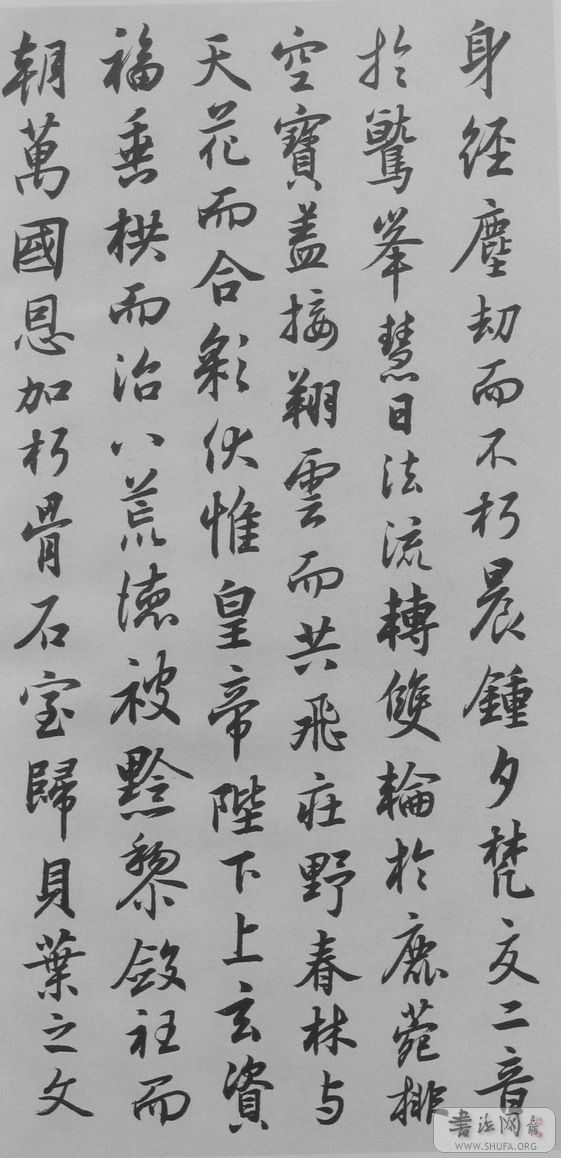 身經塵劫而不朽晨鍾夕梵交二音
於鷲峯慧日法流轉雙輪於鹿菀排
空寶盖接翔雲而共飛莊野春林与
天花而合彩伏惟皇帝陛下上玄資
福垂拱而治八荒德被黔黎斂衽而
朝萬國恩加朽骨石室歸貝葉之文
書法网
WWW.SHUFA.ORG